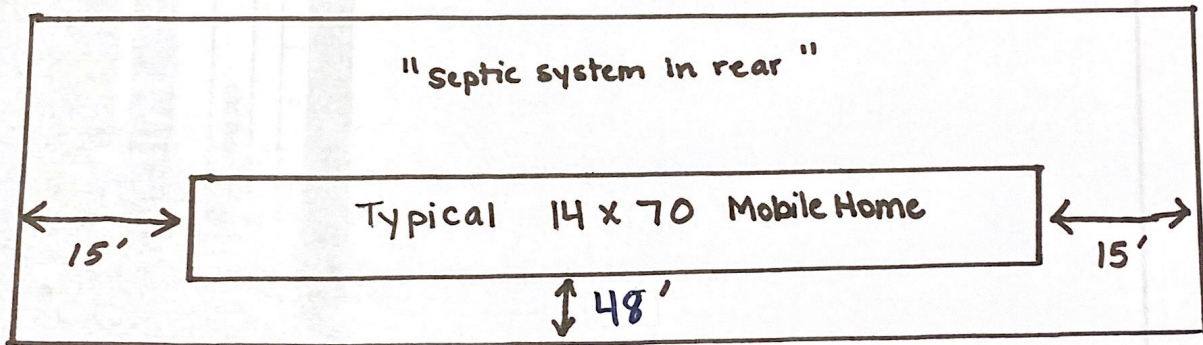 "septic system in rear"
Typical 14 x 70 Mobile Home
15'
15'
48'